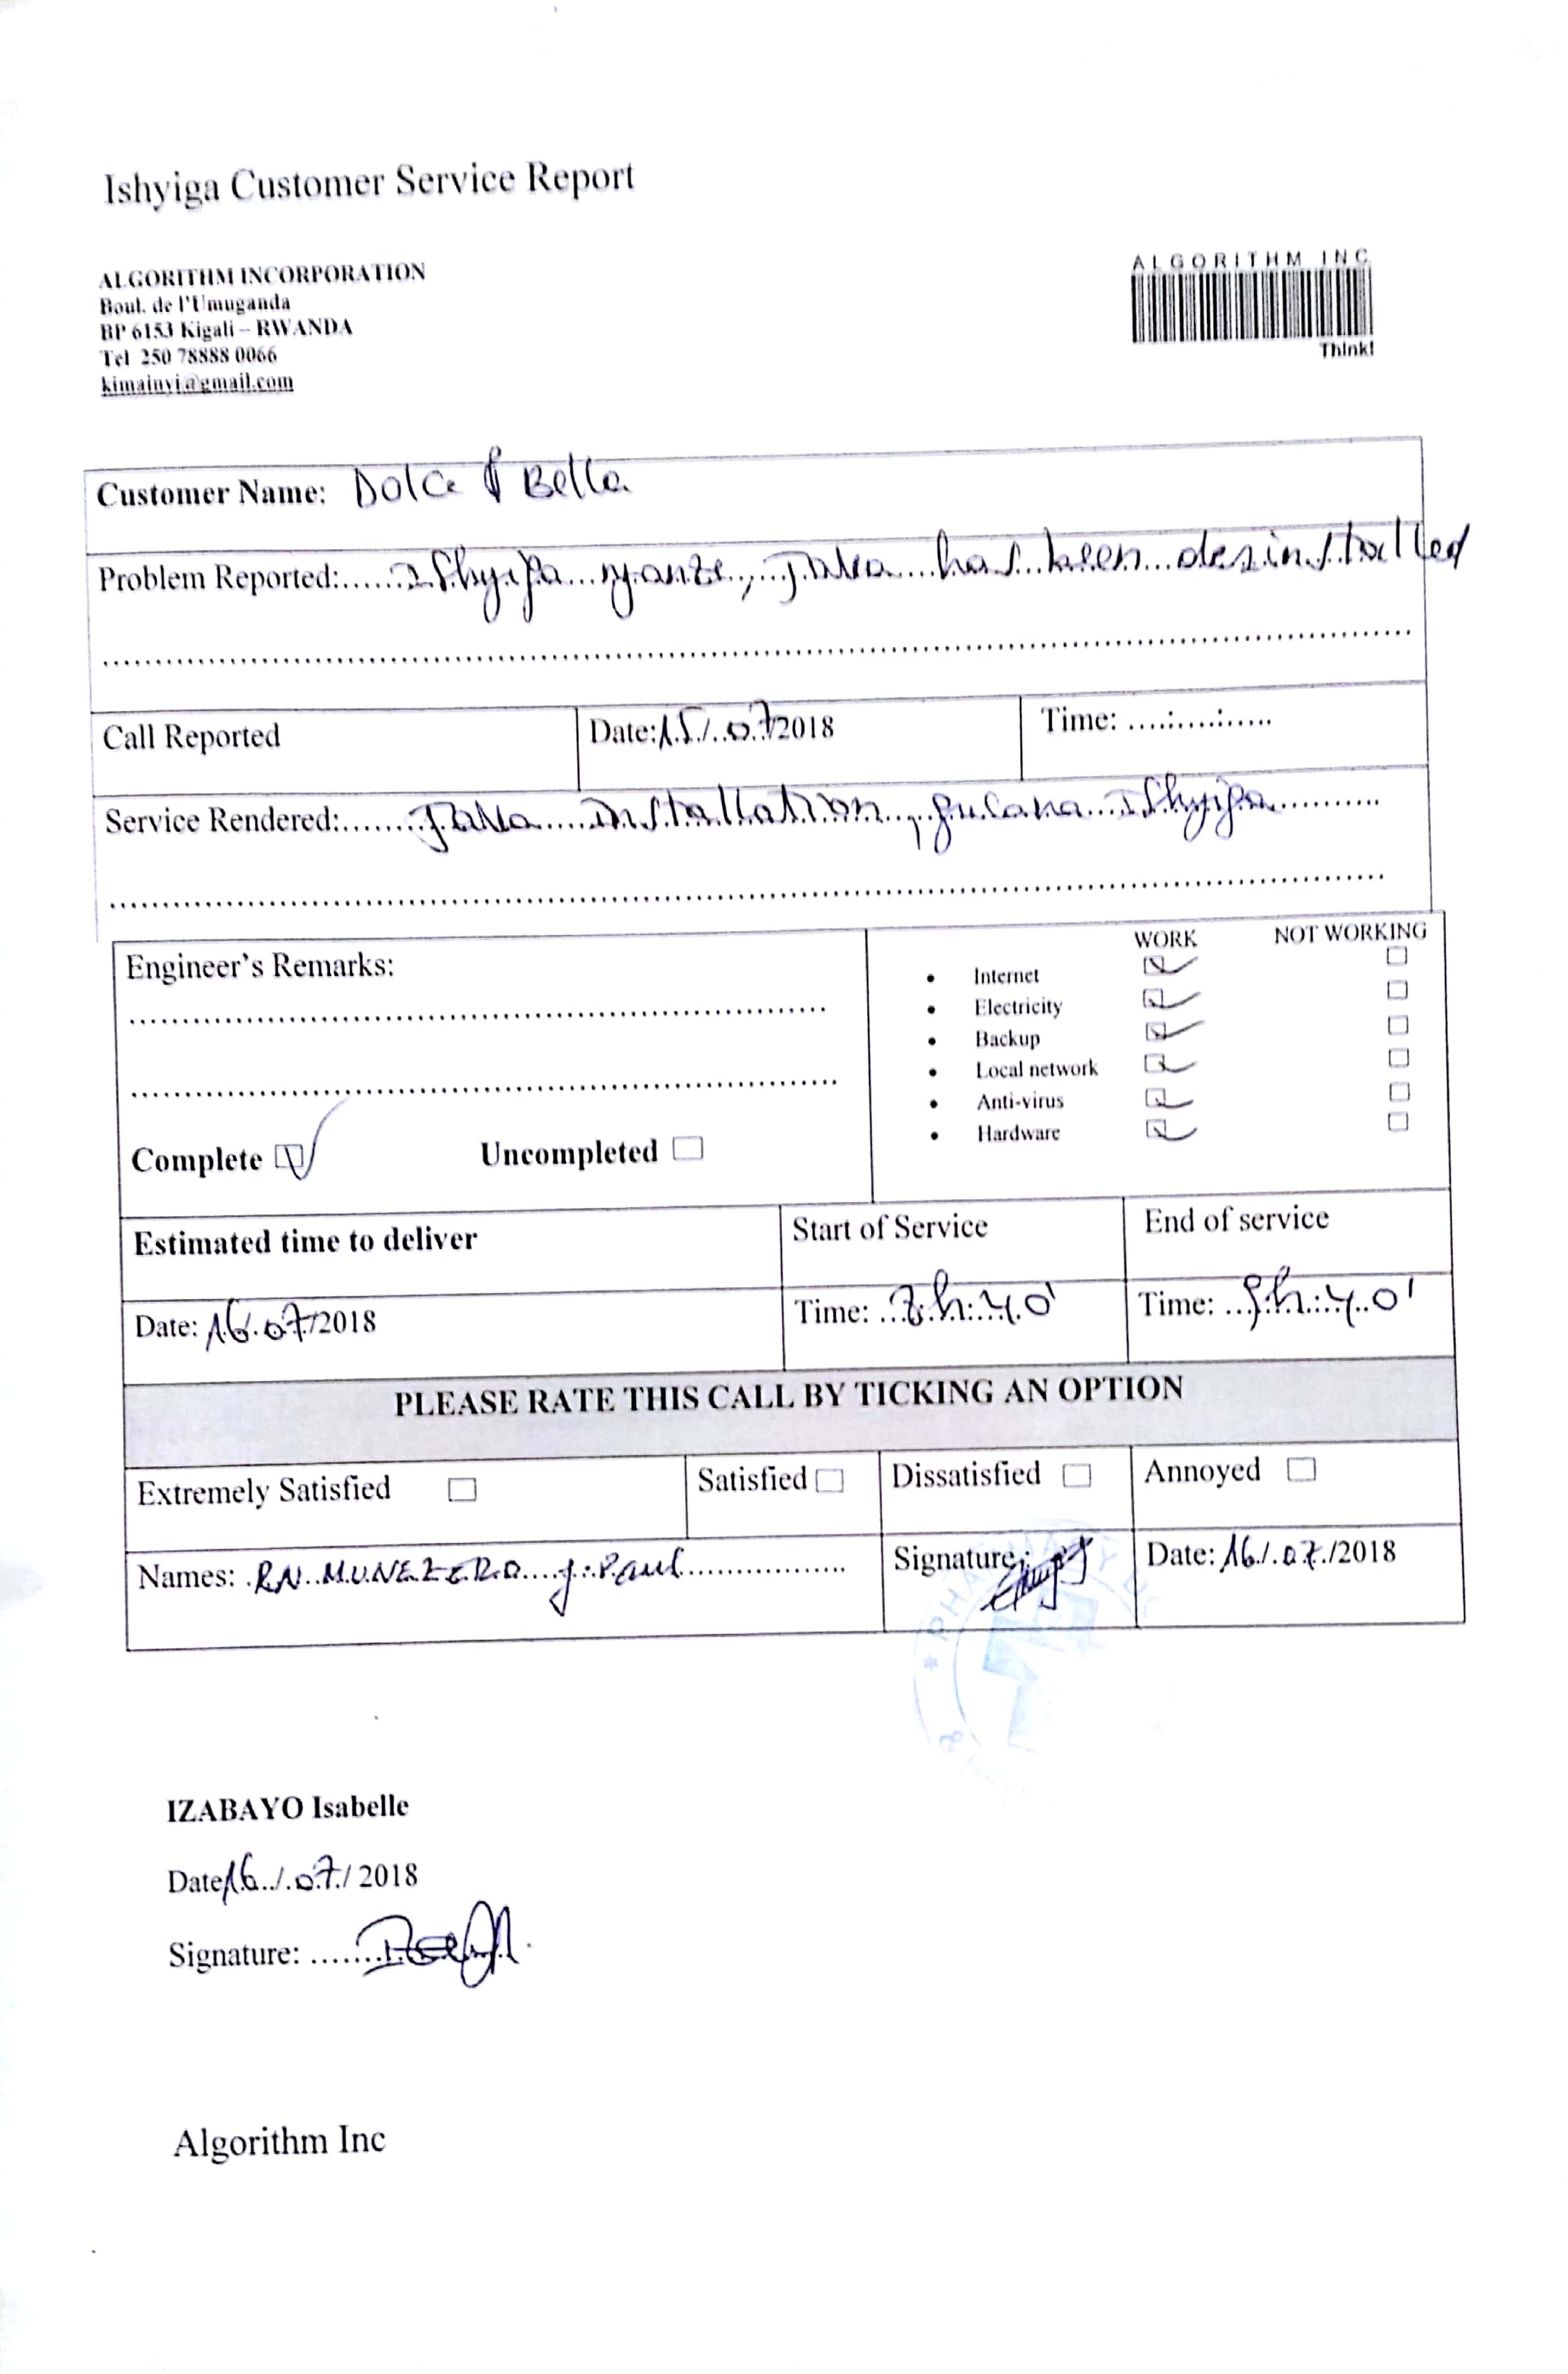 Ishyiga Customer Service Report
ALGORITHM INCORPORATION
Boul. de l'Umuganda
BP 6153 Kigali – RWANDA
Tel 250 78888 0066
kimainyi@gmail.com
ALGORITHM INC
Think!
Customer Name: Dolce & Bella
Problem Reported:.....Ishyiga yanze, Java has been desinstalled
Call Reported Date:15/07/2018 Time: ....:....:.....
Service Rendered:.......Java installation, gucana Ishyiga
WORK NOT WORKING
Engineer's Remarks:
• Internet
• Electricity
• Backup
• Local network
• Anti-virus
• Hardware
Complete Uncompleted
Estimated time to deliver Start of Service End of service
Date: 16/07/2018 Time: 8h:40' Time: 9h:40'
PLEASE RATE THIS CALL BY TICKING AN OPTION
Extremely Satisfied Satisfied Dissatisfied Annoyed
Names: RN MUNEZERO J. Paul Signature: Date: 16/07/2018
PHARMACY
IZABAYO Isabelle
Date 16/07/ 2018
Signature:
Algorithm Inc